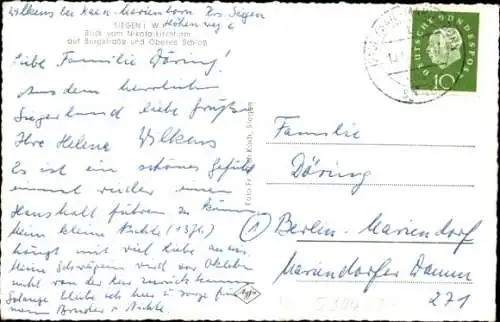 Wilkens bei Kaen-Marienborn Krs Siegen
Höhenweg 6
SIEGEN i. W.
Blick vom Nikolaikirchturm
auf Burgstraße und Oberes Schloß
Liebe Familie Döring!
Aus dem herrlichen
Siegerland liebe Grüße
Ihre Helene Wilkens
Es ist ein schönes Gefühl
einmal wieder einen
Haushalt führen zu können
Meine kleine Nichte (13 J.)
hängt mit viel Liebe an mir.
Meine Schwägerin wird vor Oktober
nicht von der Kur zurückkommen
Solange bleibe ich hier u. sorge für
mein Bruder u. Nichte.
Foto Fr. Koch, Siegen
Agfa
DEUTSCHE BUNDESPOST
10
Familie
Döring
1 Berlin-Mariendorf
Mariendorfer Damm
271